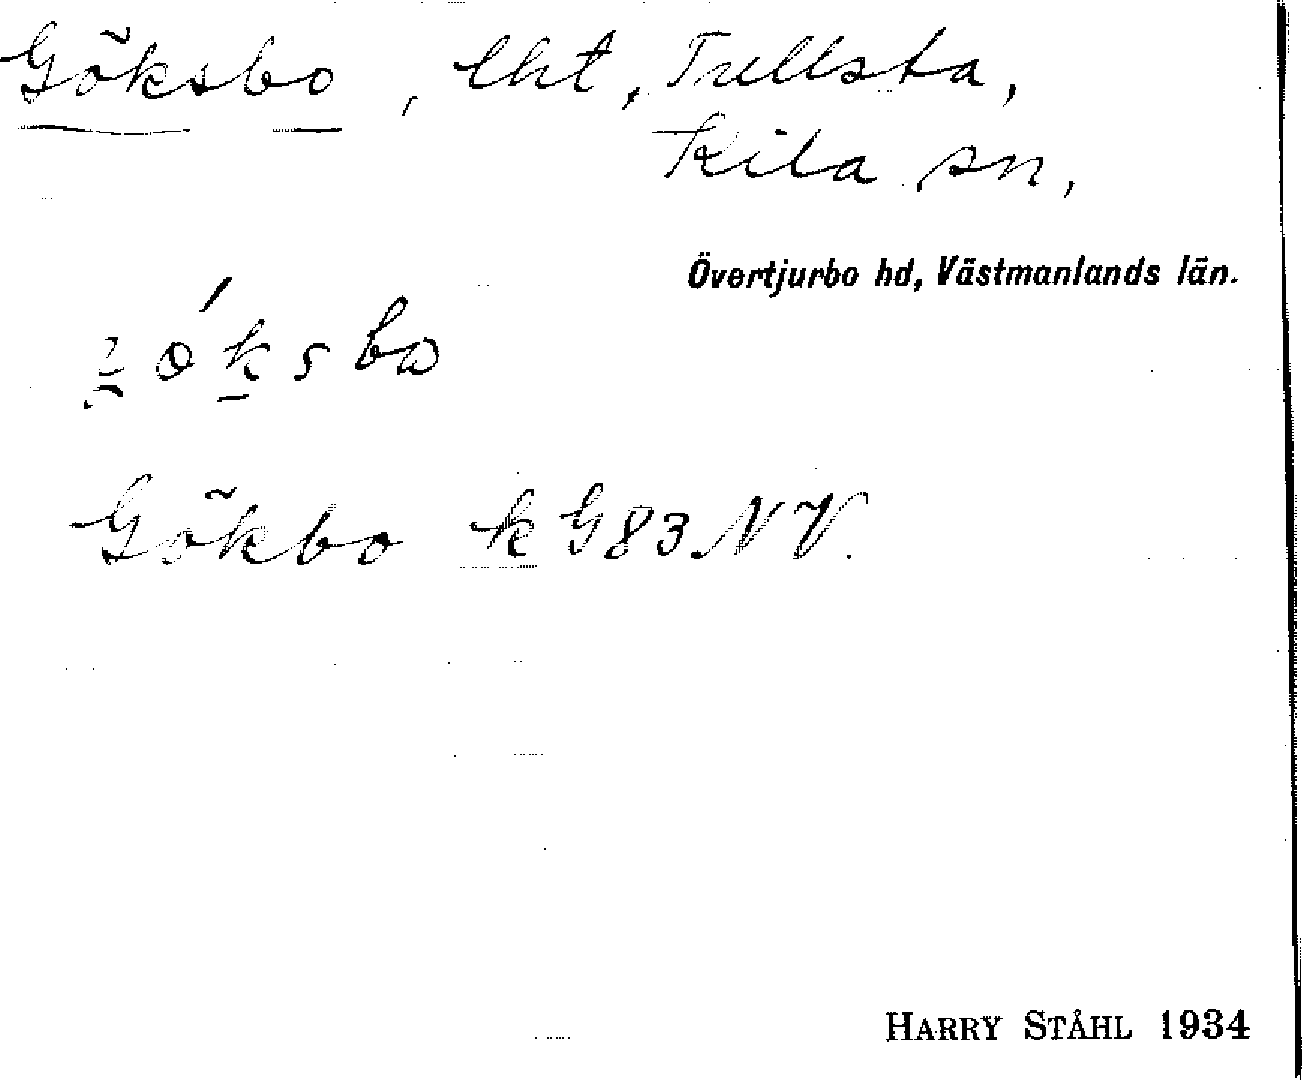 Göksbo, lht, Tullsta,
Kila sn,
Övertjurbo hd, Västmanlands län.
óksbo
Gökbo k G83NV.
HARRY STÅHL 1934